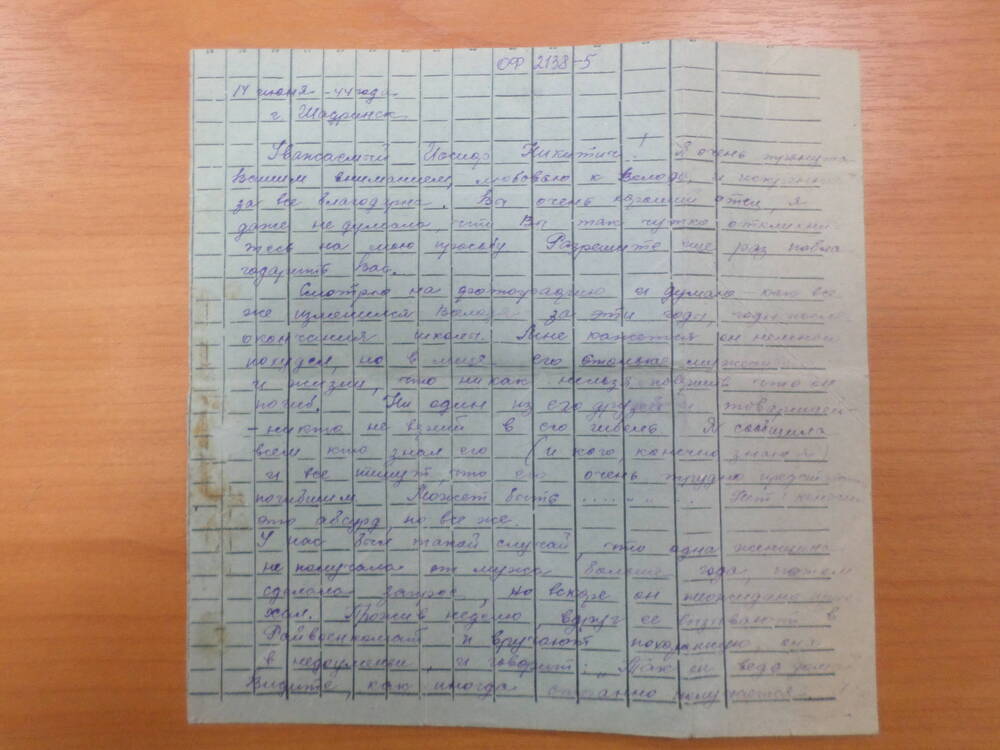 ОФ 2138-5
14 июня -44 года.
г. Шадринск
Уважаемый Иосиф Никитич! Я очень тронута
Вашим вниманием, любовью к Володе, и
за все благодарна. Вы очень хороший отец, я
даже не думала, что Вы так чутко откликне
тесь на мою просьбу Разрешите еще раз побла
годарить Вас.
Смотрю на фотографию и думаю, как все
же изменился Володя за эти годы, годы после
окончания школы. Мне кажется он немного
похудел, но в лице его столько
и жизни, что никак нельзя поверить что он
погиб. Ни один из его друзей и товарищей
- никто не верит в его гибель Я сообщила
всем кто знал его (и кого, конечно знаю я)
и все пишут, что его очень трудно представить
погибшим Может быть ......... Нет конечно
это абсурд, но все же.
У нас был такой случай, что одна женщина
не получала от мужа больше года, потом
сделала запрос, но вскоре он неожидано прие
хал. Прожив неделю, вдруг ее вызывают в
Райвоенкомат и вручают похоронную, она
в недоумении, и говорит: „Так он
Видите, как иногда странно получается.